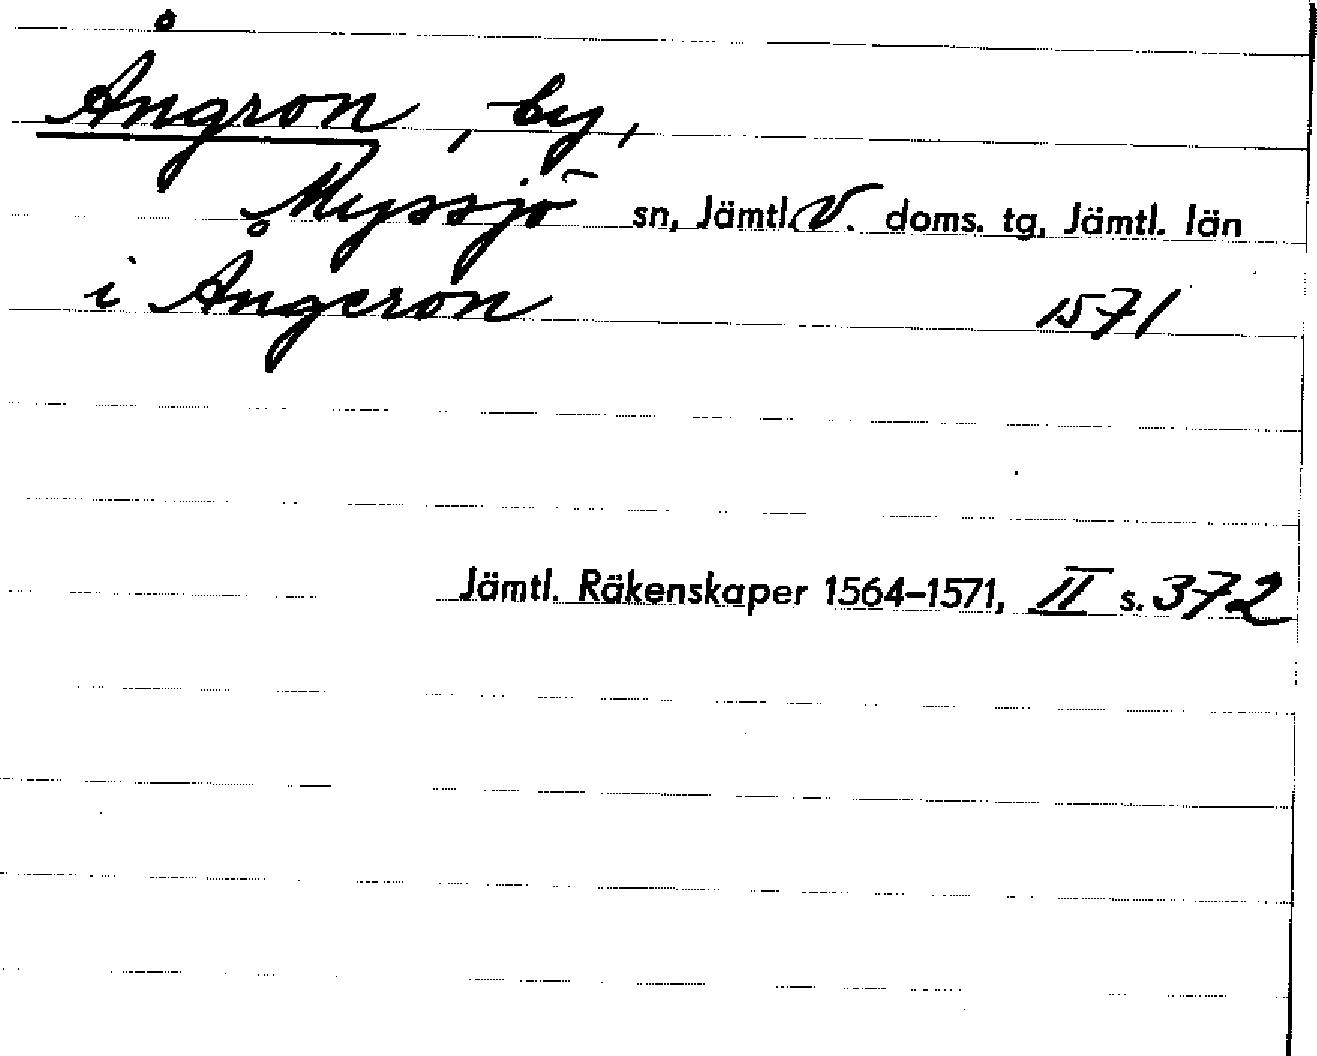 Ångron, by,
Myssjö sn, Jämtl. V. doms. tg, Jämtl. län
i Ångeron 1571
Jämtl. Räkenskaper 1564–1571, II s. 372